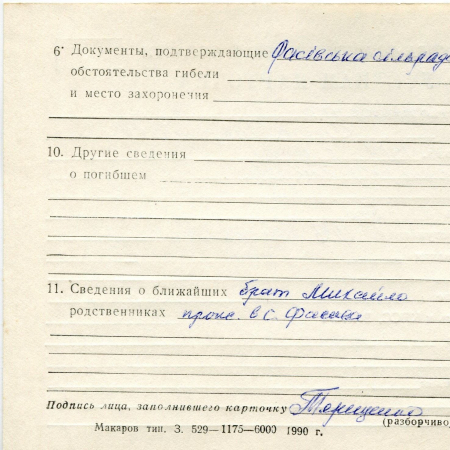 6· Документы, подтверждающие Фасівська сільрада
обстоятельства гибели
и место захоронения
10. Другие сведения
о погибшем
11. Сведения о ближайших брат Михайло
родственниках прож. в с. Фасова
Подпись лица, заполнившего карточку Терещенко
(разборчиво)
Макаров тип. З. 529—1175—6000 1990 г.